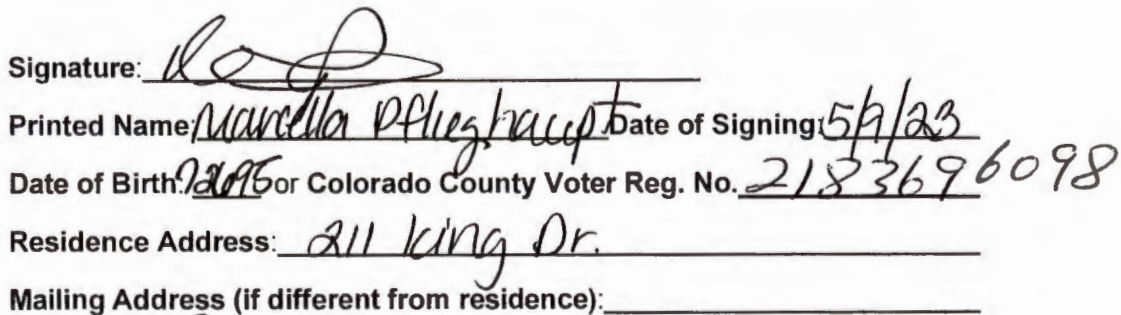 Signature:
Printed Name: Marcella Pflieghaupt Date of Signing: 5/9/23
Date of Birth: or Colorado County Voter Reg. No. 2183696098
Residence Address: 211 King Dr.
Mailing Address (if different from residence):